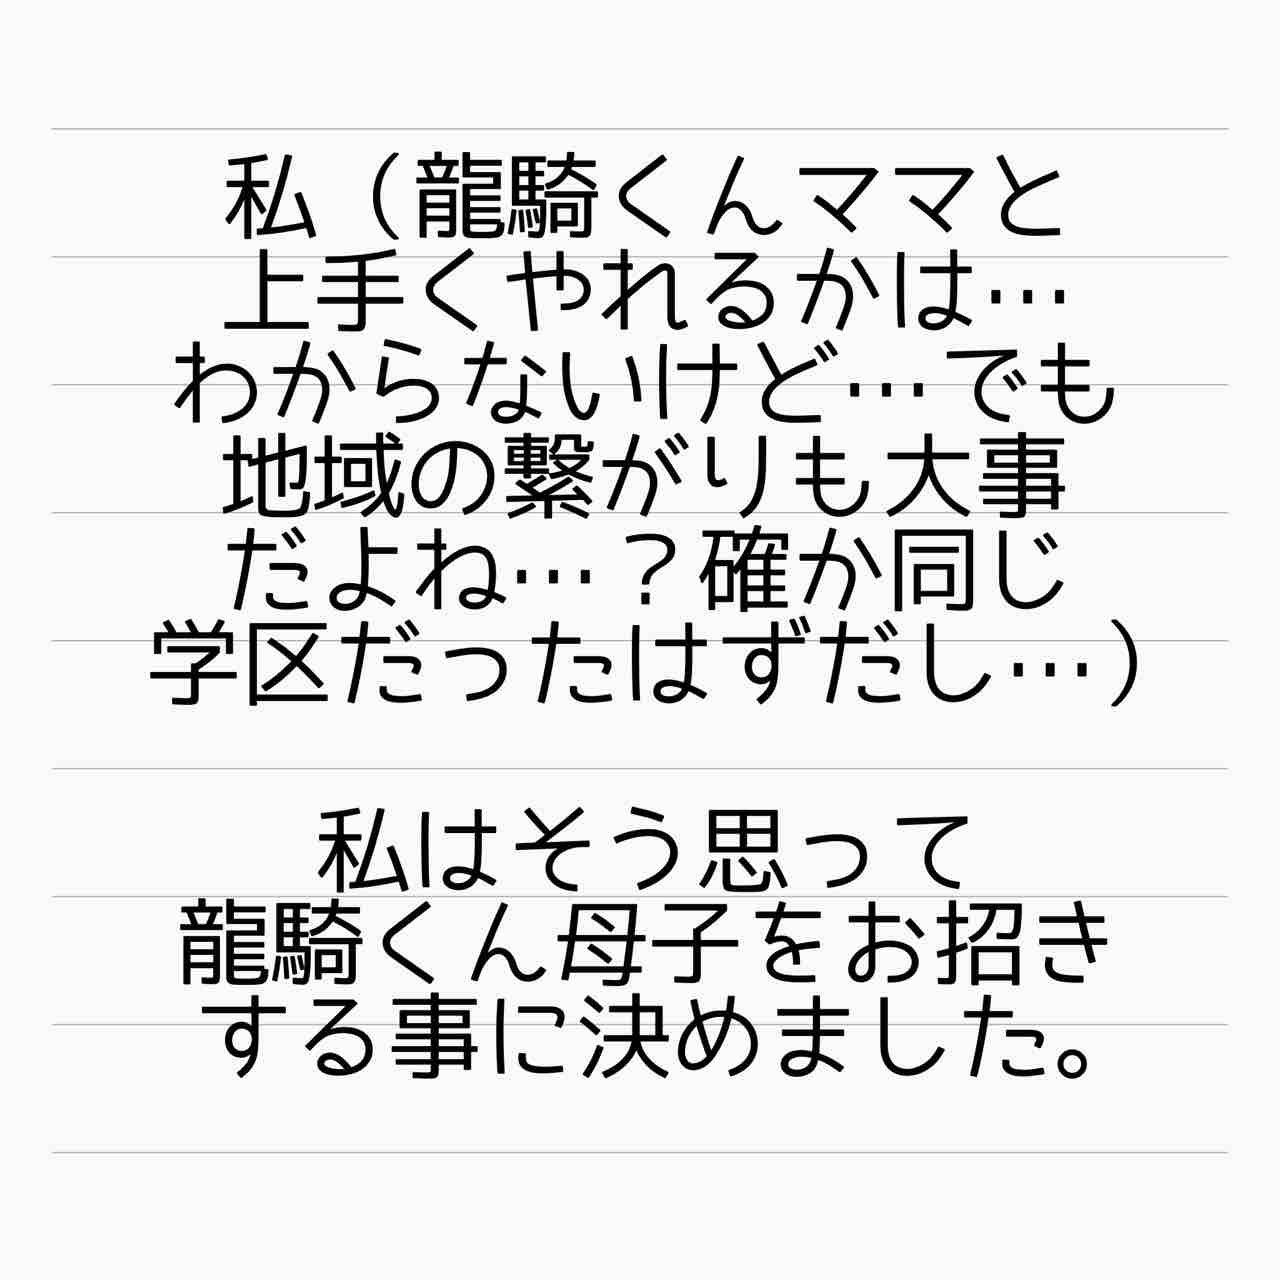 私（龍騎くんママと
上手くやれるかは…
わからないけど…でも
地域の繋がりも大事
だよね…？確か同じ
学区だったはずだし…）
私はそう思って
龍騎くん母子をお招き
する事に決めました。